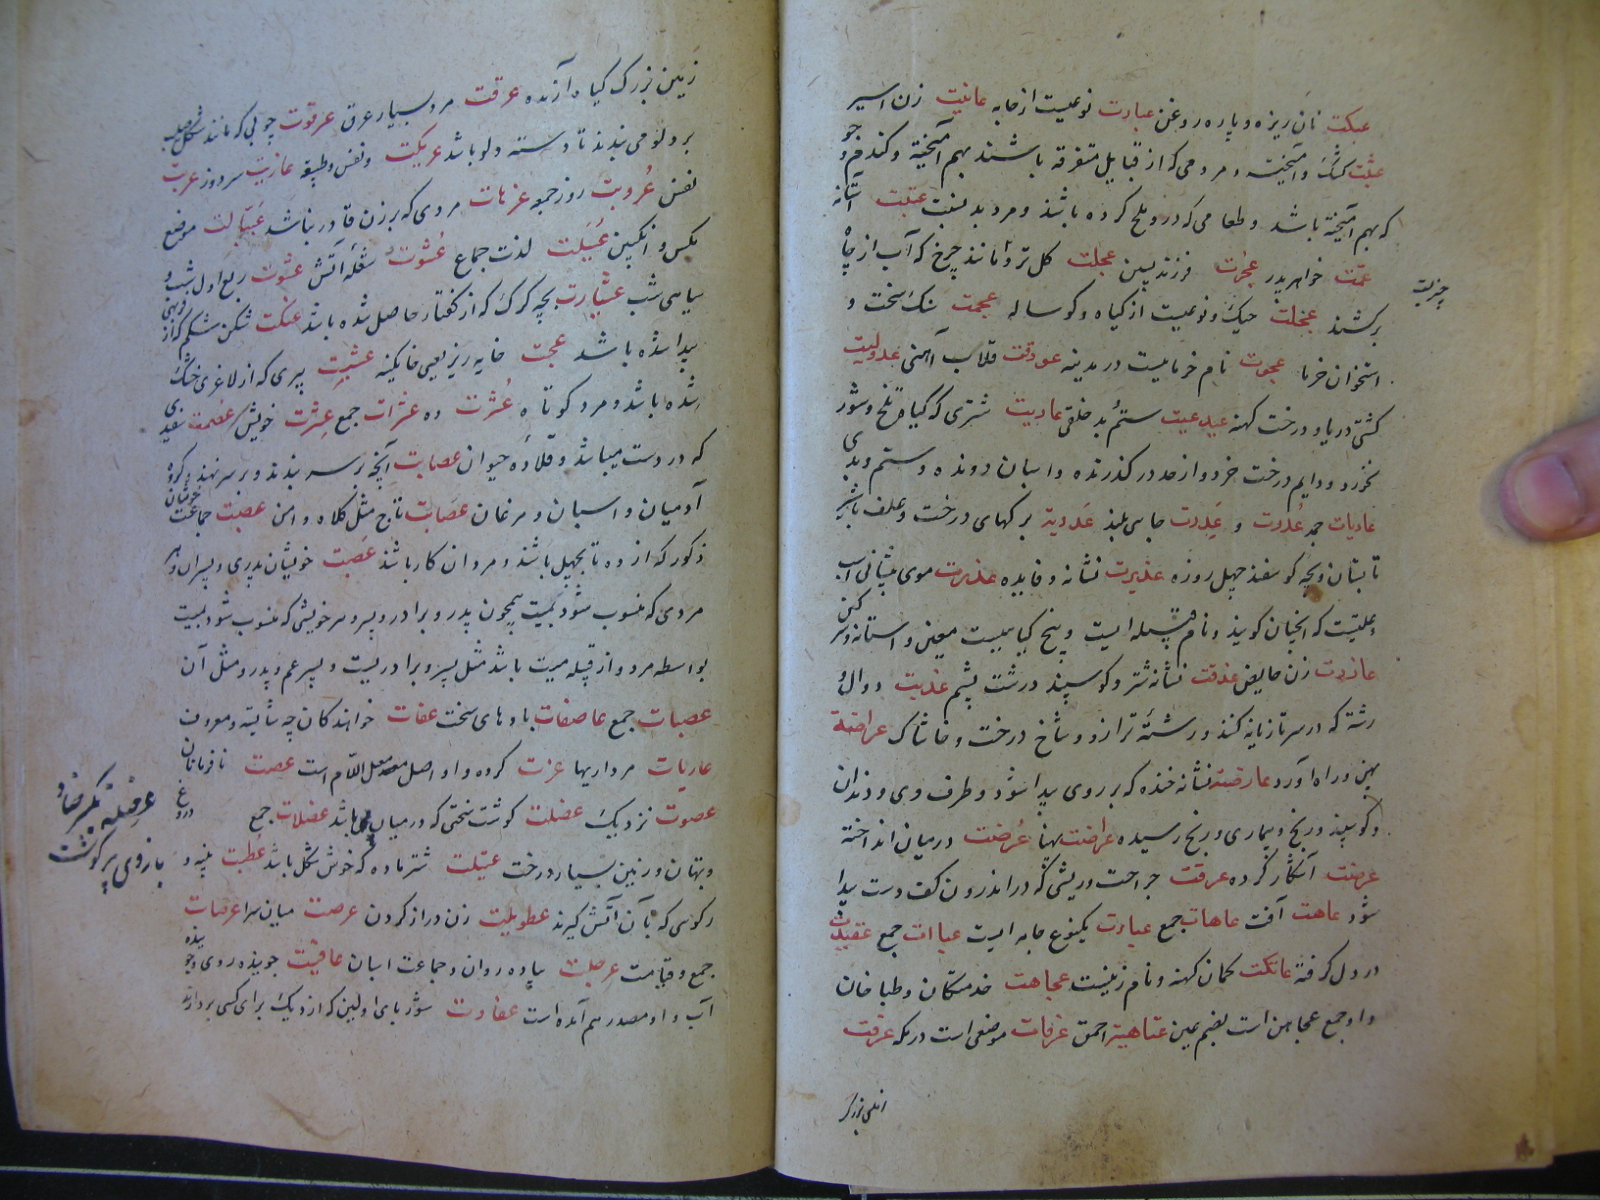 عبکت نان ریزه و پاره روغن عبارت نوعیست از جابه عانیت زن اسیر
عبثت کشک وآمیخته و مردمی که از قبایل متفرقه باشند بهم آمیخته و کندم و جو
که بهم آمیخته باشد و طعامی که درو ملح کرده باشند و مرد بد بسنت عتبت آستانه
عمّت خواهر پدر عجزت فرزند پسین عجلت کل تر و مانند چرخ که آب از چاه
چیزیست
برکشند عجلت حیک و نوعیست از کیاه و کوساله عجمت سنک سخت و
استخوان خرما عجوت نام خرمایست در مدینه عودقت قلاب آهنی عدولیت
کشتی دریا و درخت کهنه عیدعیت ستم بد خلقی عادیت شتری که کیاه تلخ و شور
خورد و دایم درخت خرد و از حد در کذرنده و اسبان دونده و ستم و بدی
عادیات جمع عُدوت و عِدوت جای بلند عَدویة برکهای درخت و علف باشد
تابستان و بچه کوسفند چهل روزه عذیرت نشانه و فایده عذرت موی پیشانی اسب
و علیتست که انجنان کویند و نام قبیله ایست و پنج کیا بیست معین و آستانه و سر
عاذرت زن حایض عذقت نشانه شتر و کوسپند درشت پشم عذبت دوال و
رشته که در سر تازیانه کنند و رشتهٔ ترازو و شاخ درخت و خاشاک عراضة
پهن و راه آورد عارضة نشانه خنده که بر روی پیدا شود و طرف وی و دندان
و کوسپند و رنج و بیماری و رنج رسیده عراضت پهنا عُرضت درمیان انداخته
عرضت آشکار کرده عرقت جراحت و ریشی که در اندرون کف دست پیدا
شود عاهت آفت عاهات جمع عبارت یکنوع جابه ایست عباآت جمع عقیدت
در دل کرفته عاتکت کمان کهنه و نام زنیست عجاهت خدمتکان و طباخان
و او جمع عجاهن است بضم عین عتاهیة احمق عرفات موضعی است در مکه عرفت
زمین بزرک کیاه آزنده عرقت مرد بسیار عرق عرقوت چوبی که مانند شکل صلیب
بر دلو می بندند تا دسته دلو باشد عریکت و نفس و طبیعة عازیت سرد و زعریت
نفس عُروبت روز جمعه عزهات مردی که بر زن قادر نباشد عَبَّالت موضع
مکس و انکبین عُسَیلت لذت جماع عُشوت شعلهٔ آتش عشوت ربع اول شب و
سیاهی شب عشبارت بچه کرک که از کفتار حاصل شده باشد عنکت شکن شکم که از فربهی
پیدا شده باشد عجّت خایه ریز یعنی خاکینه عشبت پیری که از لاغری خشک
شده باشد و مرد کوتاه عُشرت ده عشرات جمع عِشرت خویشی عصمة سفیدی
که در دست میباشد و قلاده حیوان عصابت آنچه بر سر بندند و بر سر نهند و کروه
آدمیان و اسبان و مرغان عصابت تاج مثل کلاه و امن عصبت جماعت خویشان
ذکور که از ده تا بچهل باشند و مردان کار باشند عَصبت خویشان پدری و پسران و هر
مردی که منسوب شود بمیت همچون پدر و برادر و پسر و هر خویشی که منسوب شود بمیت
بواسطه مرد و از قبیله میت باشد مثل پسر و برادر میت و پسر عم و پدر و مثل آن
عصبات جمع عاصفات بادهای سخت عفات خواهندکان چه شایسته و معروف
عاریات مرداریها عزت کروه و او اصل مصدر معل اللام است عصت نافرمانان
عصوت نزدیک عضلت کوشت سختی که درمیان پی باشد عضلات جمع دروغ
عرضلة بکسر ضاد
بازوی پر کوشت
و بهتان و زنین بسیار درخت عیثلت شتر ماده که خوش شکل باشد عطبت پنبه و
رکوی که بآن آتش کیرند عطوبلت زن دراز کردن عرصت میان سرا عرصات
جمع و قیامت عرجلت پیاده روان و جماعت اسبان عافیت جوینده روی و جوینده
آب و او مصدر هم آمده است عفاوت شوربای اولین که از دیک برای کسی بردارند